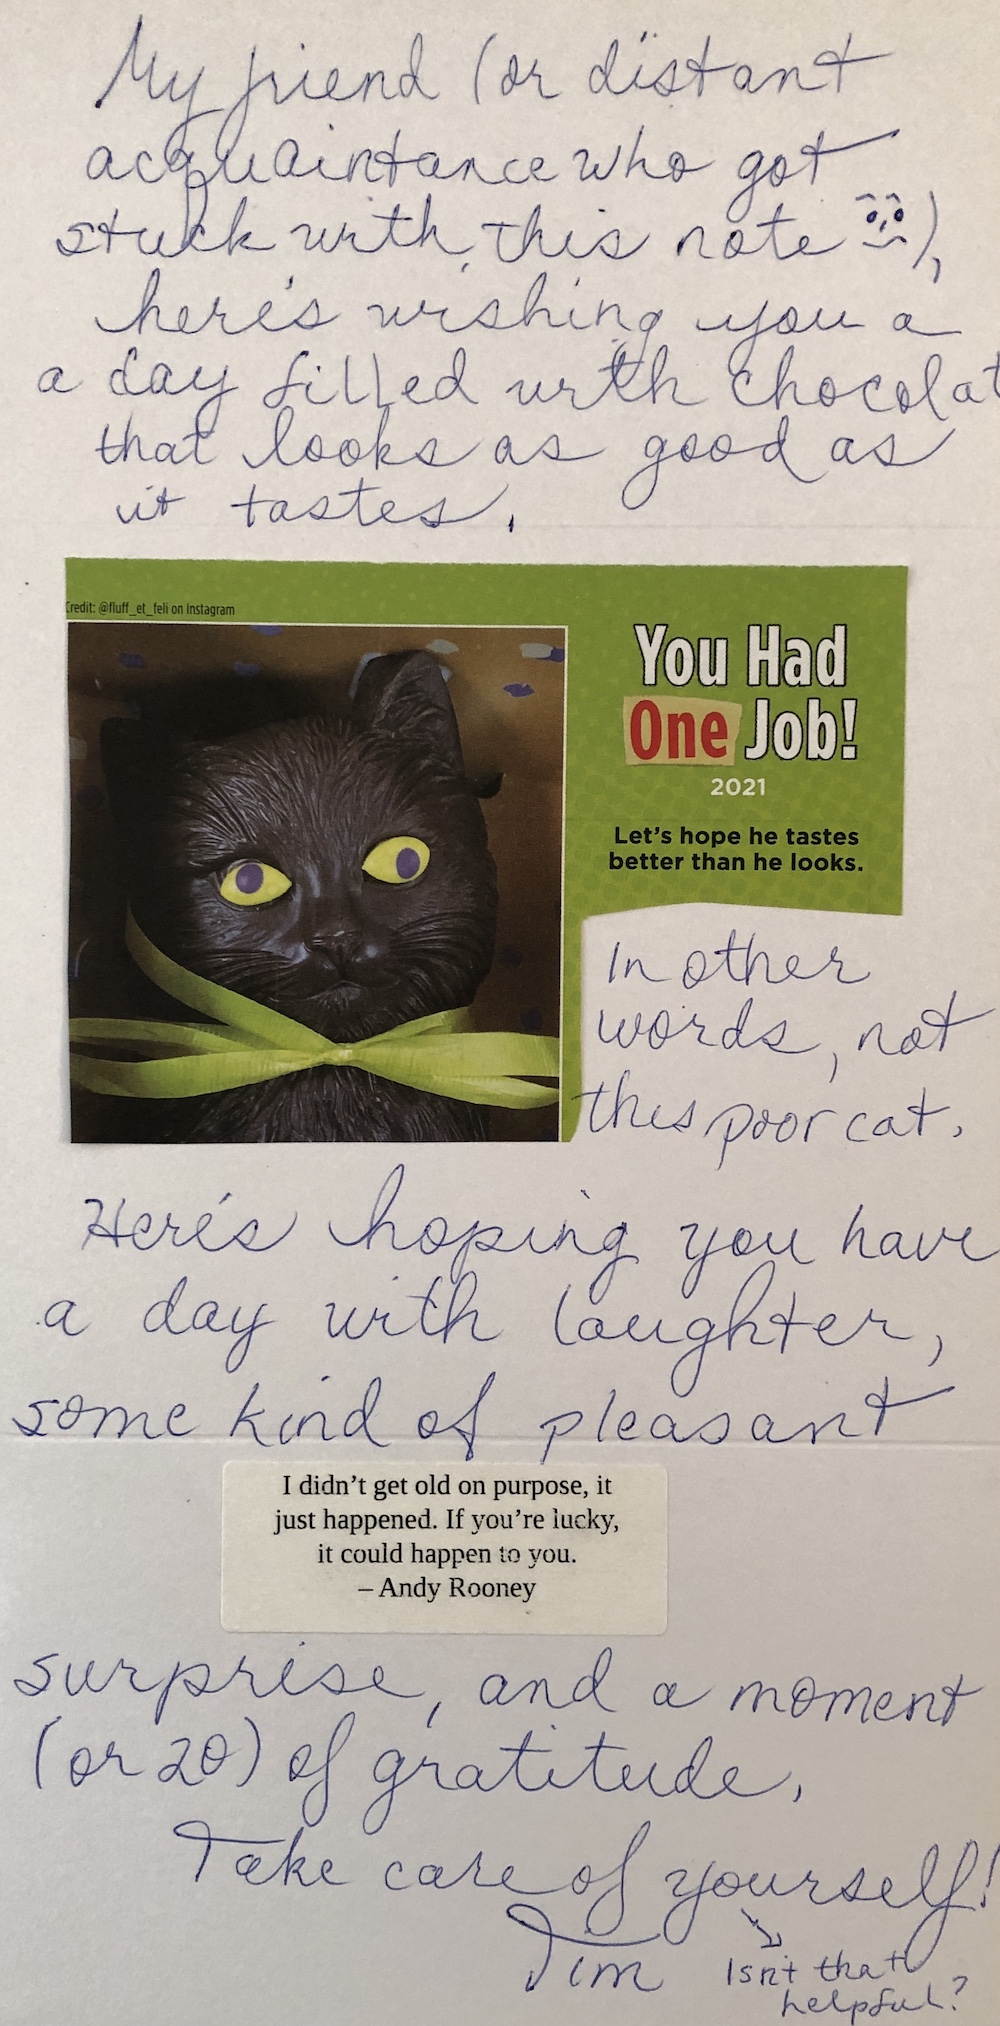 My friend (or distant
acquaintance who got
stuck with this note ),
here's wishing you a
a day filled with chocolat
that looks as good as
it tastes.
Credit: @fluff_et_feli on Instagram
You Had
One Job!
2021
Let's hope he tastes
better than he looks.
In other
words, not
this poor cat.
Here's hoping you have
a day with laughter,
some kind of pleasant
I didn't get old on purpose, it
just happened. If you're lucky,
it could happen to you.
– Andy Rooney
surprise, and a moment
(or 20) of gratitude.
Take care of yourself!
Tim
Isn't that
helpful?